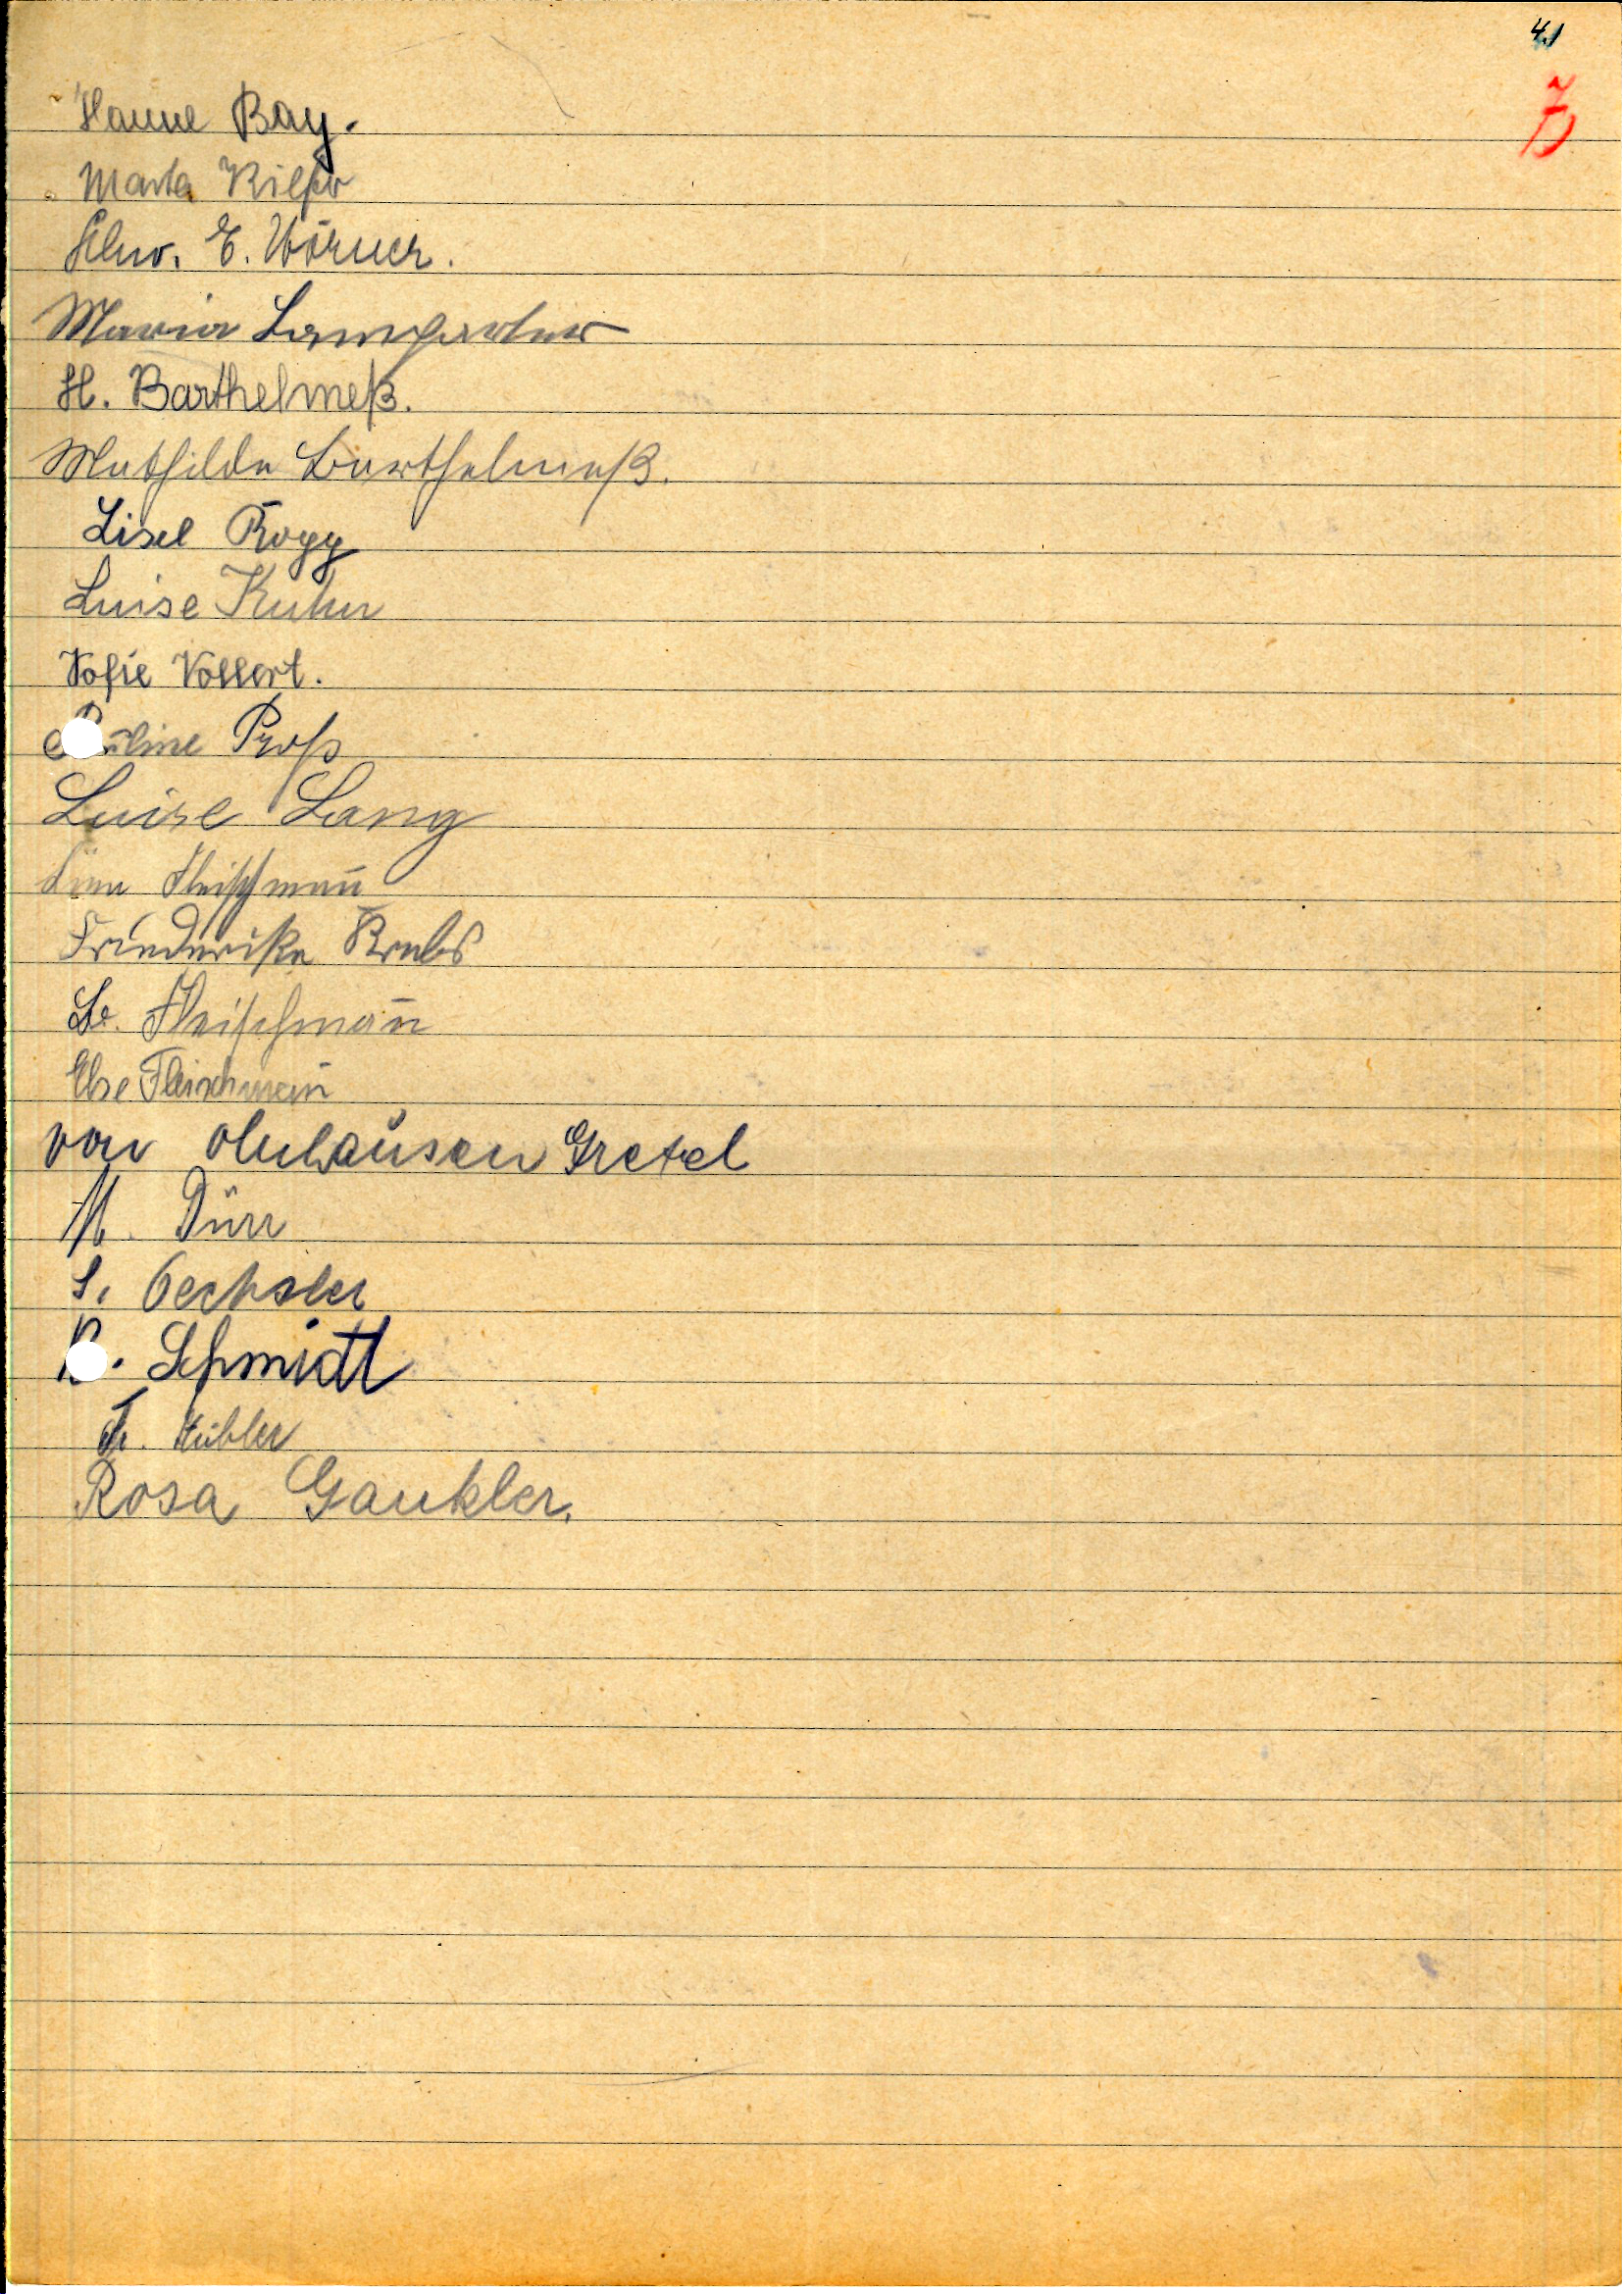 41
Hanne Bay.
Marta
Schw. E. Wörner.
Maria
H. Barthelmeß.
Mathilde Barthelmeß.
Lisel Rogg
Luise Kuhn
Sofie Vollert.
Pauline Proß
Luise Lang
Fleischman̄
Friederike Krebs
Fleischman̄
Else Fleischman̄
von Olnhausen Gretel
M. Dürr
S. Oechsler
Schmidt
Fr. Kübler
Rosa Gaukler.